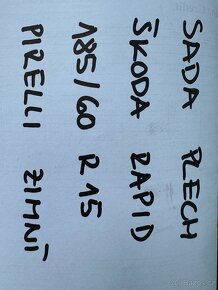 SADA PLECH
ŠKODA RAPID
185/60 R15
PIRELLI ZIMNÍ